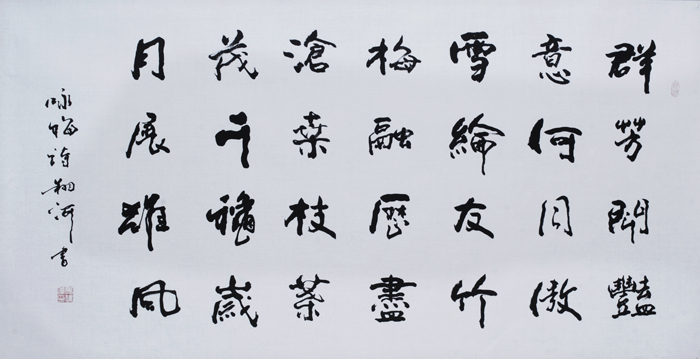 群芳鬥豔
意何同傲
雪綸友竹
梅融歷盡
滄桑枝葉
茂千龝歲
月展雄風
咏梅詩 書